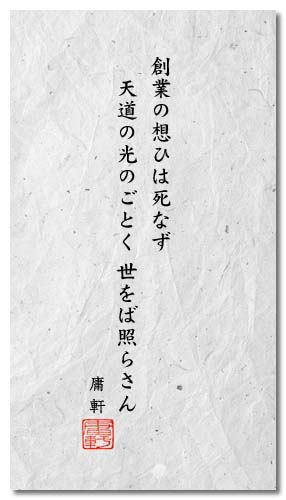 創業の想ひは死なず
天道の光のごとく 世をば照らさん
庸軒